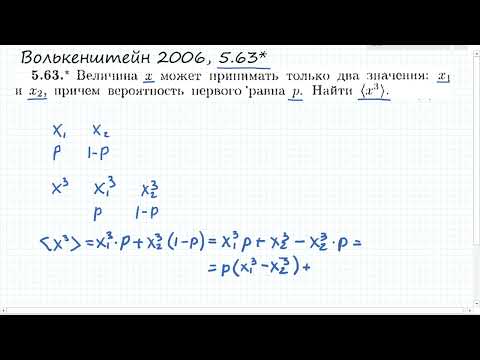 Волькенштейн 2006, 5.63*
5.63.* Величина x может принимать только два значения: x₁
и x₂, причем вероятность первого равна p. Найти ⟨x³⟩.
x₁ x₂
p 1-p
x³ x₁³ x₂³
p 1-p
⟨x³⟩ = x₁³·p + x₂³(1-p) = x₁³p + x₂³ - x₂³·p =
= p(x₁³ - x₂³) +